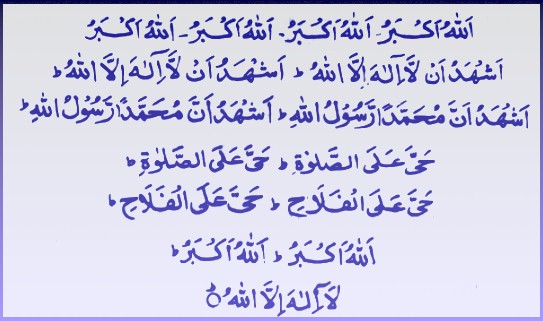 اَللّٰهُ اَكْبَرُ۔ اَللّٰهُ اَكْبَرُ۔ اَللّٰهُ اَكْبَرُ۔ اَللّٰهُ اَكْبَرُ
اَشْهَدُ اَنْ لَّآ اِلٰهَ اِلَّا اللهُ ؕ اَشْهَدُ اَنْ لَّآ اِلٰهَ اِلَّا اللهُ ؕ
اَشْهَدُ اَنَّ مُحَمَّدًا رَّسُوْلُ اللهِ ؕ اَشْهَدُ اَنَّ مُحَمَّدًا رَّسُوْلُ اللهِ ؕ
حَیَّ عَلَی الصَّلٰوةِ ؕ حَیَّ عَلَی الصَّلٰوةِ ؕ
حَیَّ عَلَی الْفَلَاحِ ؕ حَیَّ عَلَی الْفَلَاحِ ؕ
اَللّٰهُ اَكْبَرُ ؕ اَللّٰهُ اَكْبَرُ ؕ
لَآ اِلٰهَ اِلَّا اللهُ ؕ○